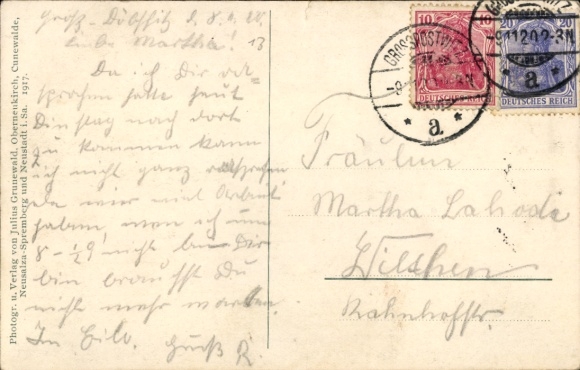 Groß-Döbschütz d. 8.
Liebe Martha!
Da ich Dir ver-
sprochen hatte heut
Dinstag nach dort
zu kommen kann
ich nicht ganz
da wir viel Arbeit
haben, wenn ich um
8 - ½9 nicht bei Dir
bin brauchst Du
nicht mehr warten.
In Eile. Gruß R.
Photogr. u. Verlag von Julius Grunewald, Oberneukirch, Cunewalde,
Neusalza-Spremberg und Neustadt i. Sa. 1917.
10 10
DEUTSCHES REICH
20 20
DEUTSCHES REICH
GROSSPOSTWITZ
* a *
9.11.20.2-3N
* a *
Fräulein
Martha Lahode
Wilthen
Bahnhofstr.